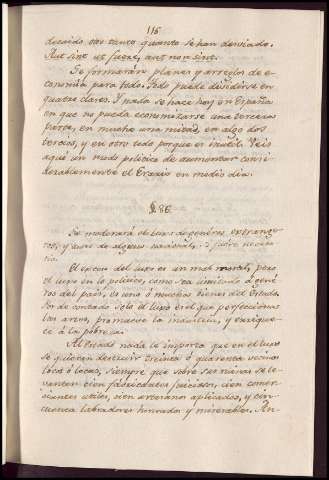 116
decaido otro tanto quanto se han desviado.
Aut sint ut fuere, aut non sint.
Se formarán planes y arreglos de eco-
nomía para todo. Todo puede dividirse en
quatro clases. Y nada se hace hoy en España
en que no pueda economizarse una tercera
parte, en mucho una mitad, en algo dos
tercios, y en otro todo porque es inutil. Veis
aquí un modo político de aumentar consi-
derablemente el Erario en medio dia.
§ 86.
Se moderará el luxo de generos extrange-
ros, y aun de algunos nacionales, si fuere necesa-
rio.
El exceso del luxo es un mal moral, pero
el luxo en lo político, como sea limitado á gene-
ros del pais, es uno ó muchos bienes del Estado.
Por de contado solo el luxo es el que perfecciona
las artes, promueve la industria, y enrique-
ce á la pobreza.
Al Estado nada le importa que en el luxo
se quieran destruir treinta ó quarenta vecinos
locos ó locas, siempre que sobre sus ruinas se le-
vanten cien fabricantes juiciosos, cien comer-
ciantes utiles, cien artesanos aplicados, y cin-
cuenta labradores honrados y miserables. An-